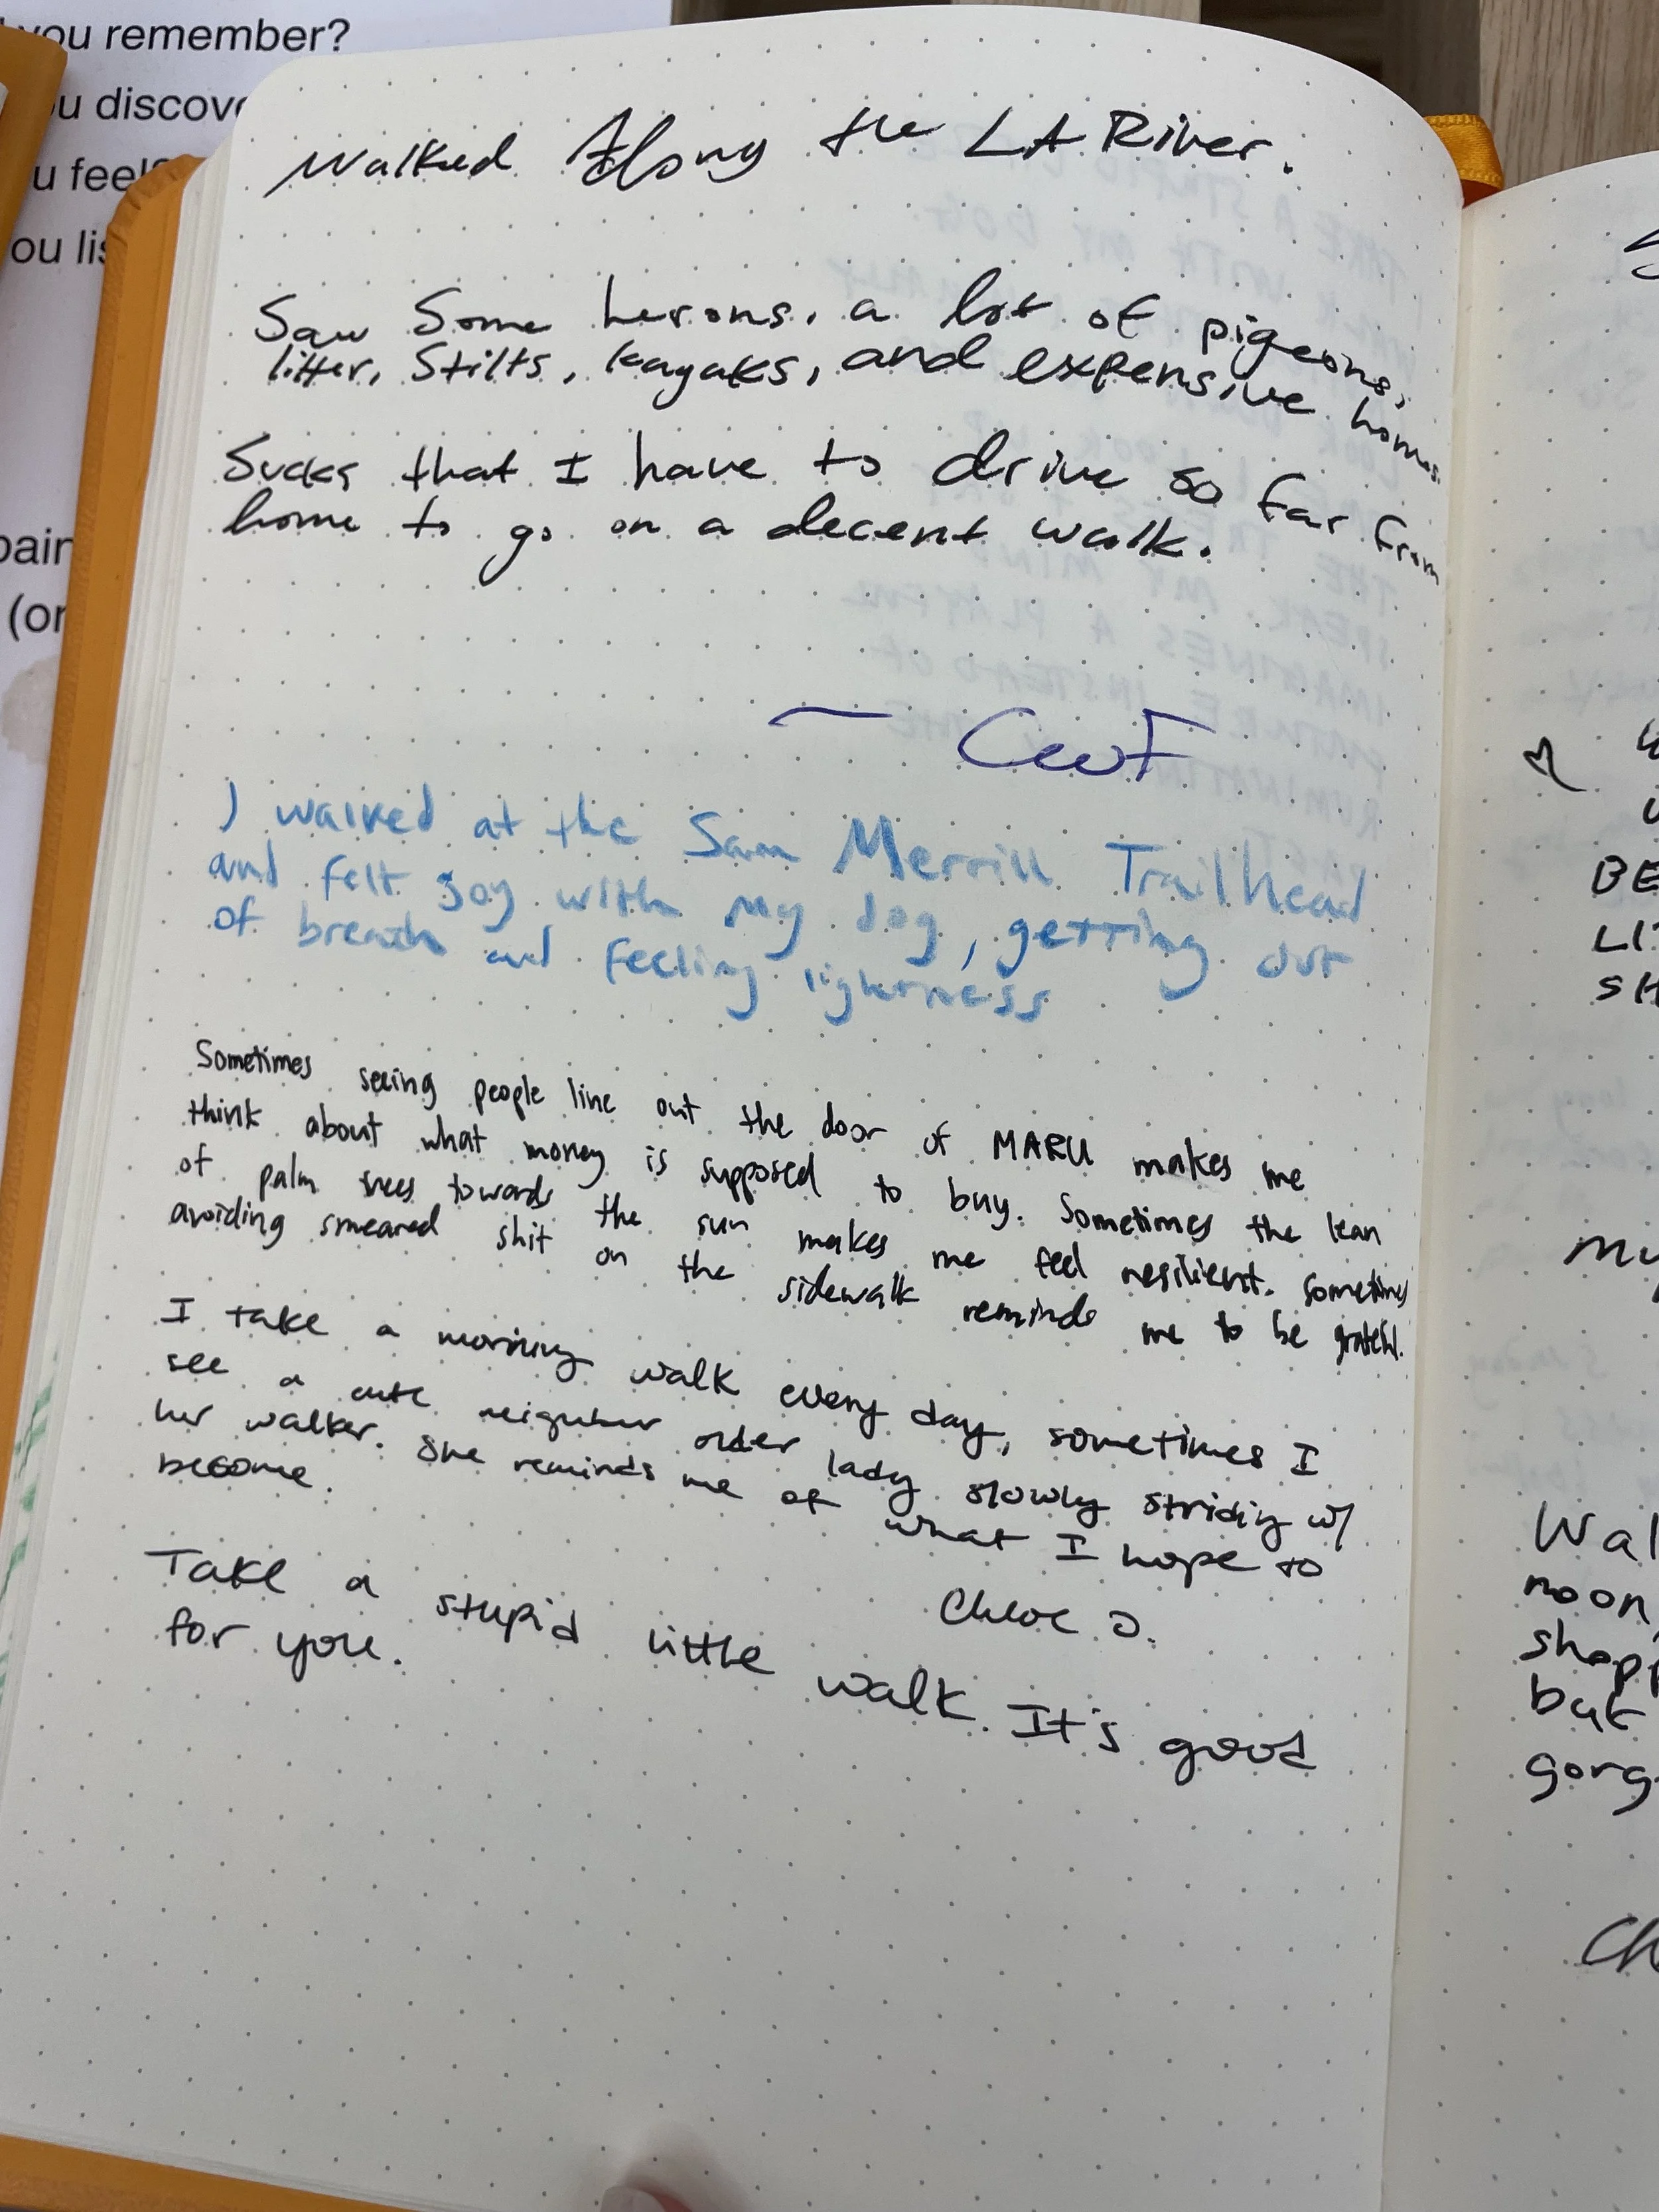 you remember?
u discov
u feel
ou lis
pain
(or
Walked Along the LA River.
Saw Some herons, a lot of pigeons,
litter, Stilts, kayaks, and expensive homes.
Sucks that I have to drive so far from
home to go on a decent walk.
I walked at the Sam Merrill Trailhead
and felt joy with my dog, getting out
of breath and feeling lightness
Sometimes seeing people line out the door of MARU makes me
think about what money is supposed to buy. Sometimes the lean
of palm trees towards the sun makes me feel resilient. Sometimes
avoiding smeared shit on the sidewalk reminds me to be grateful.
I take a morning walk every day, sometimes I
see a cute neighbor older lady slowly striding w/
her walker. She reminds me of what I hope to
become.
Chloe J.
Take a stupid little walk. It's good
for you.
BE
LI
SH
my
Wal
noon,
shopp
but
gorg
Ch